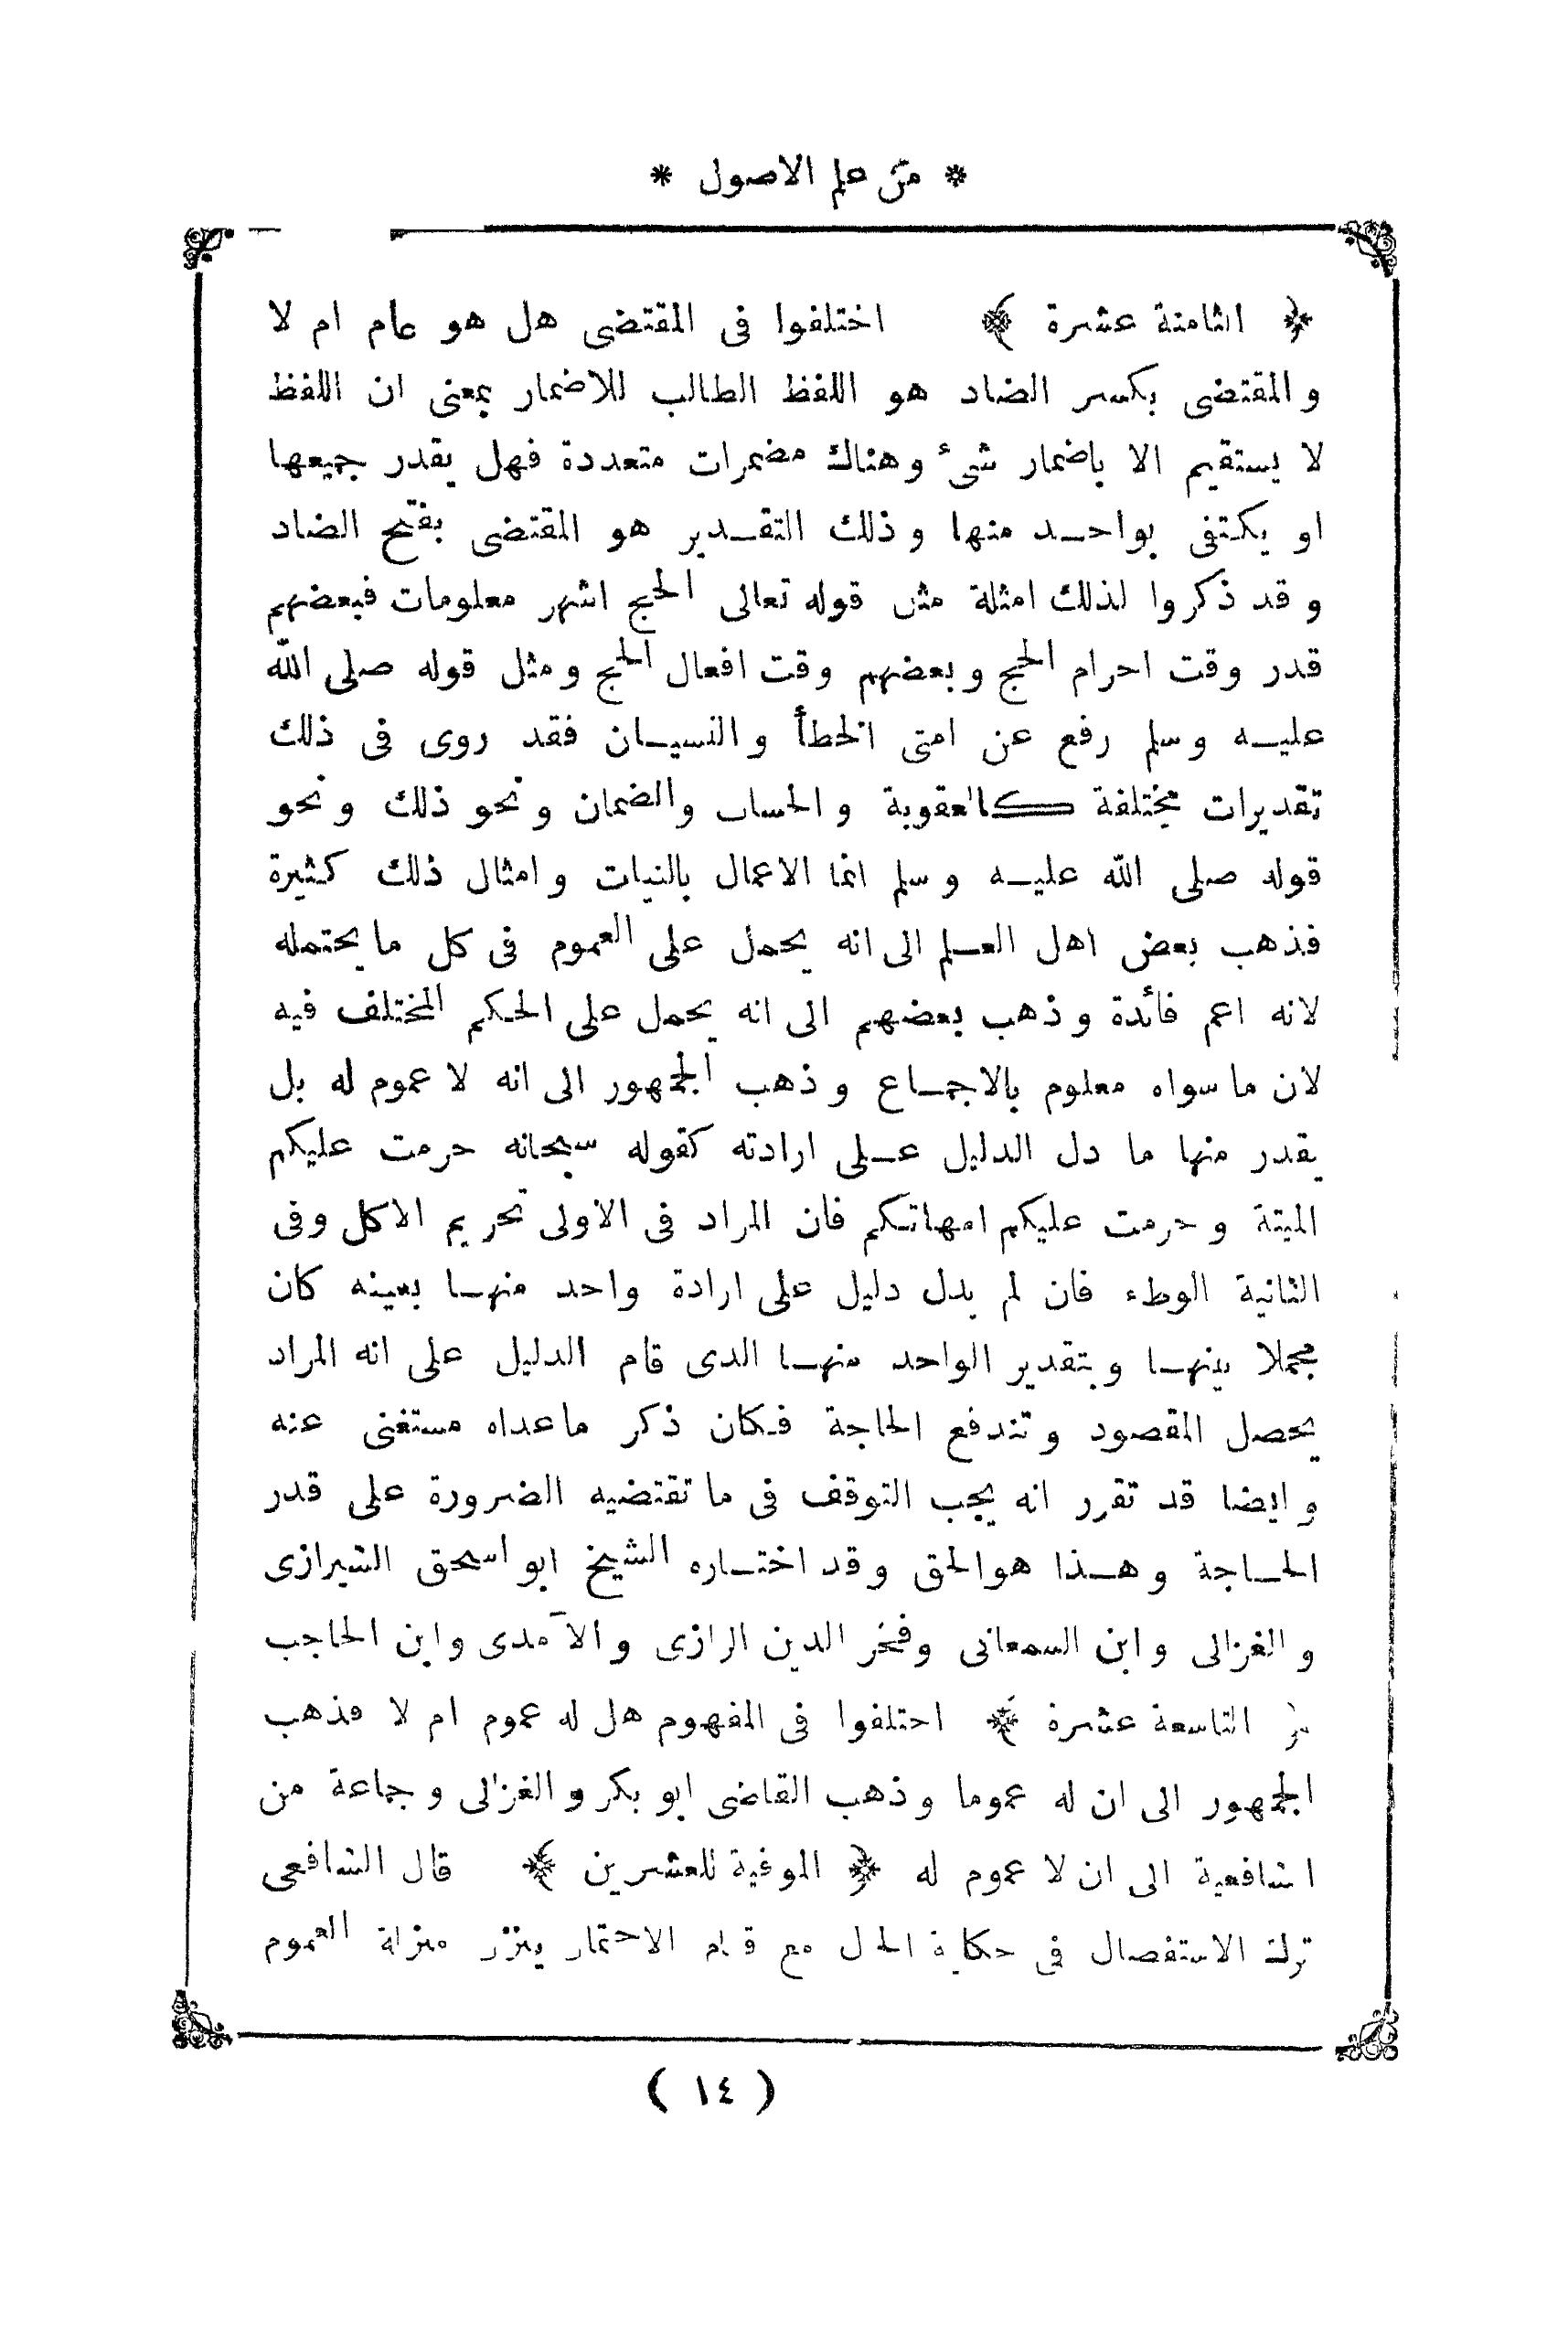 * من علم الاصول *
﴿ الثامنة عشرة ﴾ اختلفوا فى المقتضى هل هو عام ام لا
والمقتضى بكسر الضاد هو اللفظ الطالب للاضمار بمعنى ان اللفظ
لا يستقيم الا باضمار شىء وهناك مضمرات متعددة فهل يقدر جميعها
او يكتفى بواحد منها وذلك التقدير هو المقتضى بفتح الضاد
وقد ذكروا لذلك امثلة مثل قوله تعالى الحج اشهر معلومات فبعضهم
قدر وقت احرام الحج وبعضهم وقت افعال الحج ومثل قوله صلى الله
عليه وسلم رفع عن امتى الخطأ والنسيان فقد روى فى ذلك
تقديرات مختلفة كالعقوبة والحساب والضمان ونحو ذلك ونحو
قوله صلى الله عليه وسلم انما الاعمال بالنيات وامثال ذلك كثيرة
فذهب بعض اهل العلم الى انه يحمل على العموم فى كل ما يحتمله
لانه اعم فائدة وذهب بعضهم الى انه يحمل على الحكم المختلف فيه
لان ما سواه معلوم بالاجماع وذهب الجمهور الى انه لا عموم له بل
يقدر منها ما دل الدليل على ارادته كقوله سبحانه حرمت عليكم
الميتة وحرمت عليكم امهاتكم فان المراد فى الاولى تحريم الاكل وفى
الثانية الوطء فان لم يدل دليل على ارادة واحد منها بعينه كان
مجملا بينها وبتقدير الواحد منها الذى قام الدليل على انه المراد
يحصل المقصود وتندفع الحاجة فكان ذكر ما عداه مستغنى عنه
وايضا قد تقرر انه يجب التوقف فى ما تقتضيه الضرورة على قدر
الحاجة وهذا هو الحق وقد اختاره الشيخ ابو اسحق الشيرازى
والغزالى وابن السمعانى وفخر الدين الرازى والآمدى وابن الحاجب
﴿ التاسعة عشرة ﴾ اختلفوا فى المفهوم هل له عموم ام لا فذهب
الجمهور الى ان له عموما وذهب القاضى ابو بكر والغزالى وجماعة من
الشافعية الى ان لا عموم له ﴿ الموفية للعشرين ﴾ قال الشافعى
ترك الاستفصال فى حكاية الحال مع قيام الاحتمال ينزل منزلة العموم
( ١٤ )